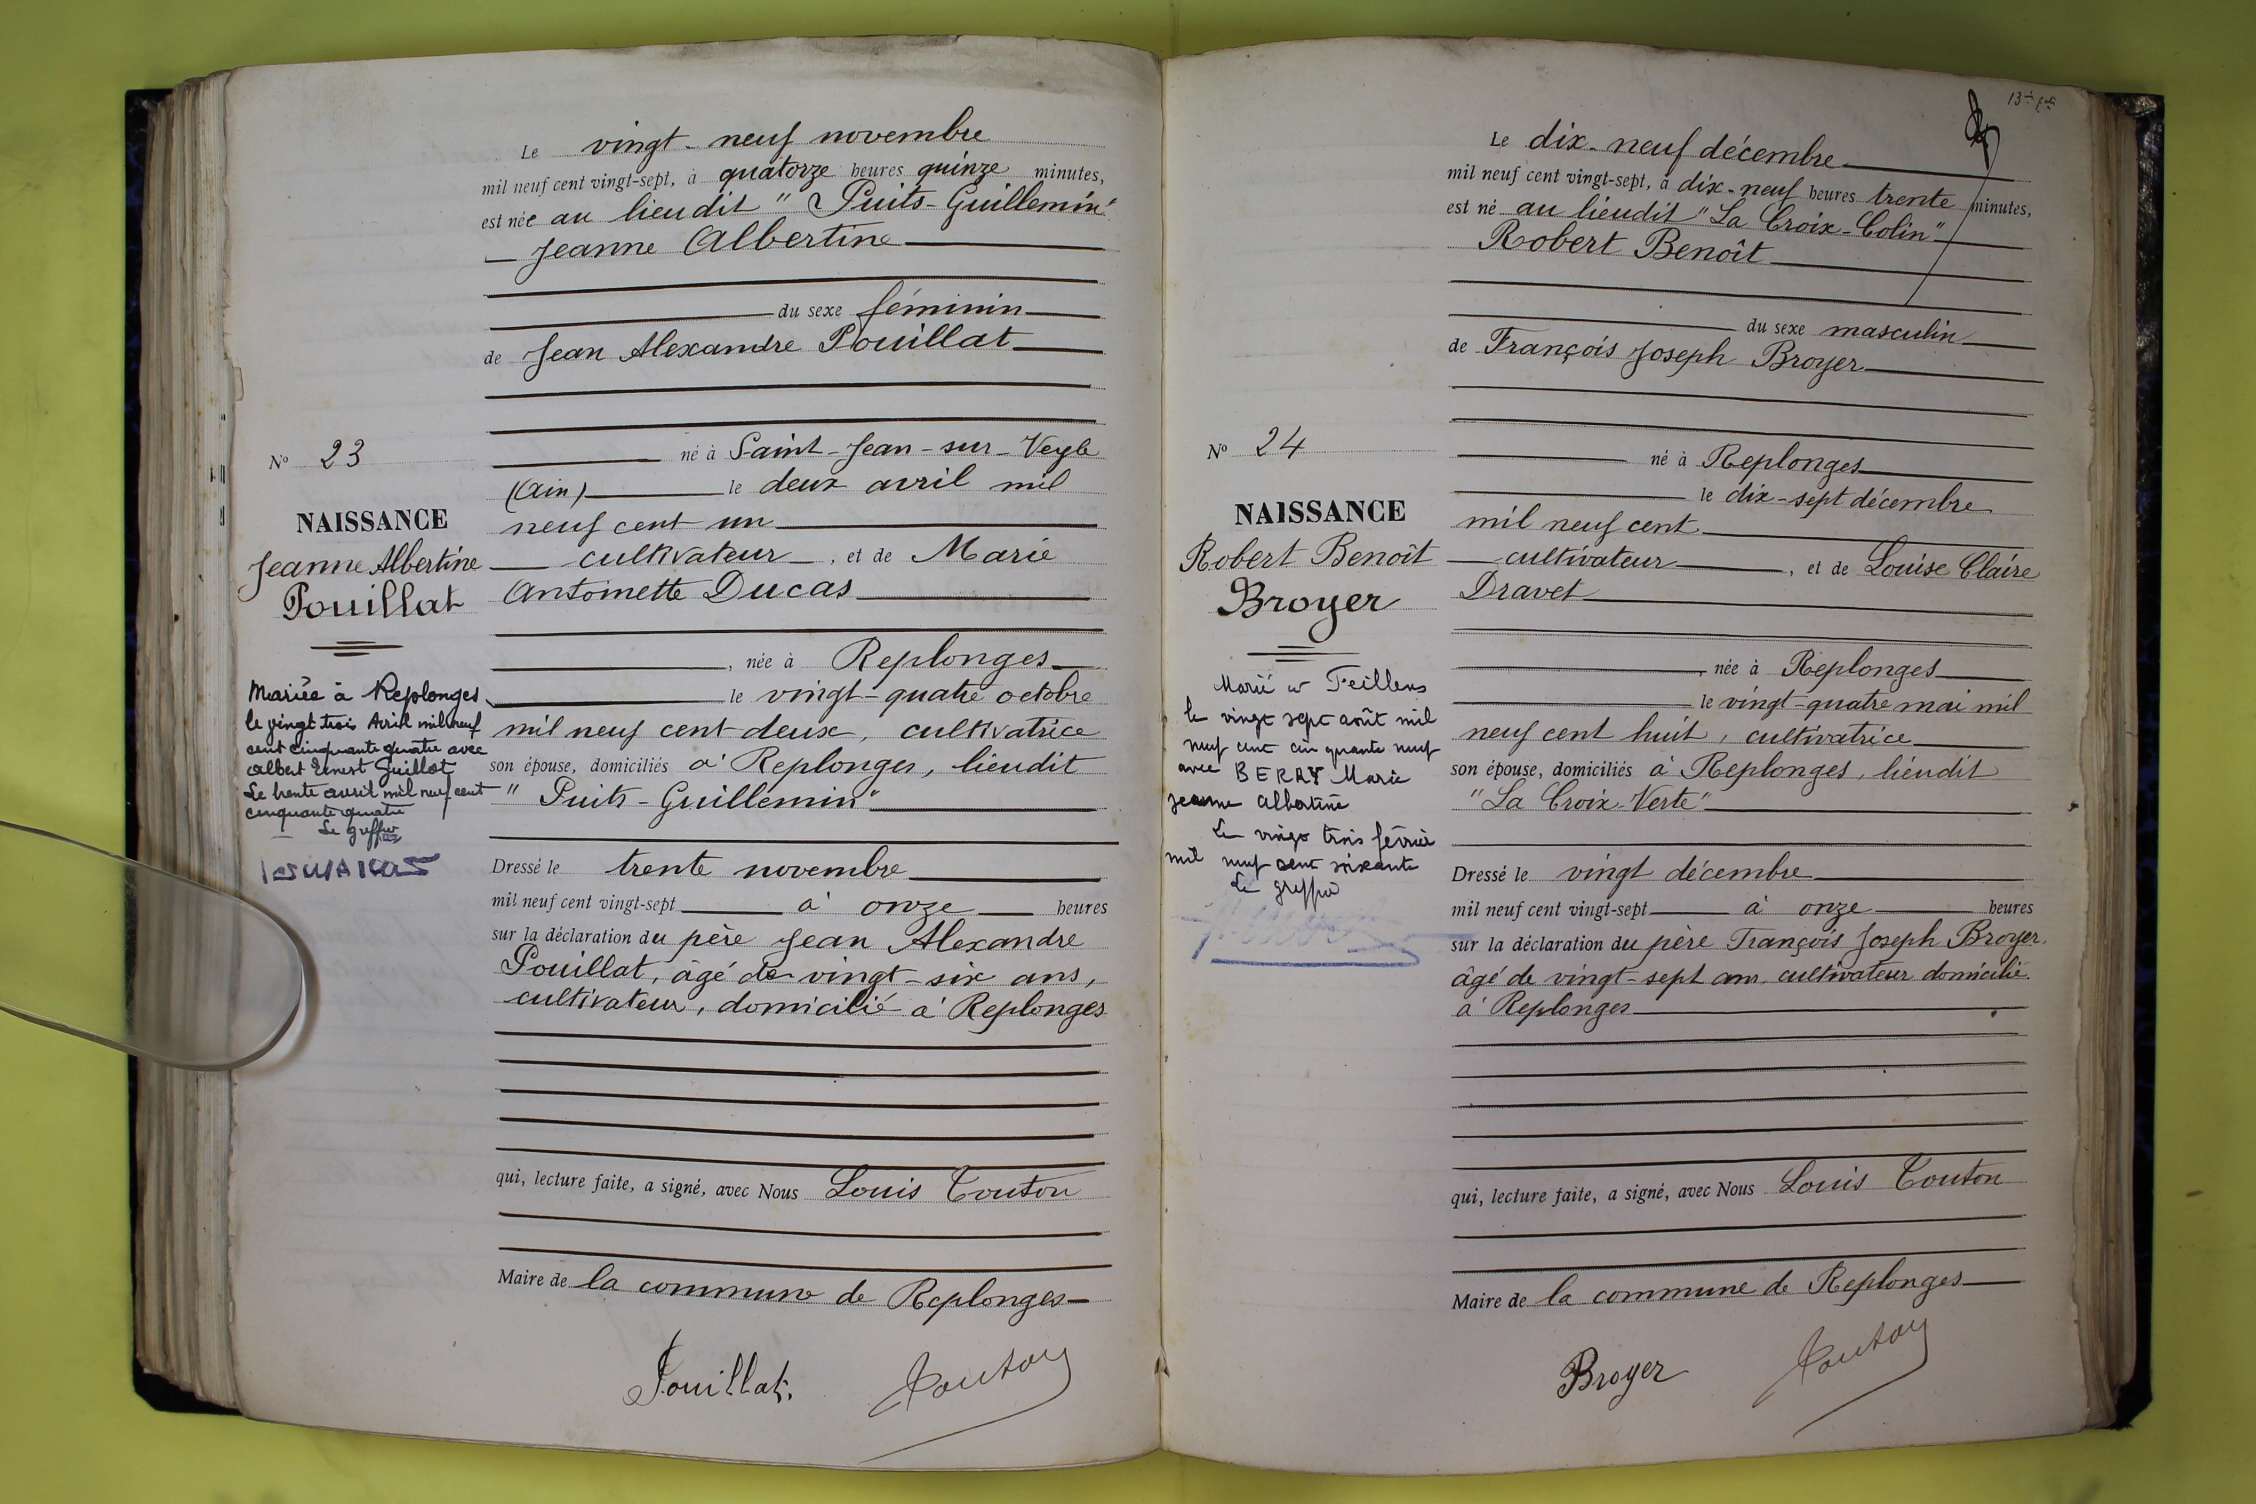 Le vingt-neuf novembre
mil neuf cent vingt-sept, à quatorze heures quinze minutes,
est née au lieudit "Puits-Guillemin"
Jeanne Albertine
du sexe féminin
de Jean Alexandre Pouillat
N° 23
né à Saint-Jean-sur-Veyle
(Ain) le deux avril mil
NAISSANCE
neuf cent un
Jeanne Albertine
cultivateur, et de Marie
Pouillat
Antoinette Ducas
née à Replonges
le vingt-quatre octobre
mil neuf cent deux, cultivatrice
son épouse, domiciliés à Replonges, lieudit
"Puits-Guillemin"
Mariée à Replonges
le vingt trois Avril mil neuf
cent cinquante quatre avec
Albert Ernest Guillot
Le trente avril mil neuf cent
cinquante quatre
Le greffier
Dressé le trente novembre
mil neuf cent vingt-sept à onze heures
sur la déclaration du père Jean Alexandre
Pouillat, âgé de vingt-six ans,
cultivateur, domicilié à Replonges
qui, lecture faite, a signé, avec Nous Louis Touton
Maire de la commune de Replonges
Pouillat.
Touton
Le dix-neuf décembre
mil neuf cent vingt-sept, à dix-neuf heures trente minutes,
est né au lieudit "La Croix-Colin"
Robert Benoît
du sexe masculin
de François Joseph Broyer
N° 24
né à Replonges
le dix-sept décembre
NAISSANCE
mil neuf cent
Robert Benoît
cultivateur, et de Louise Claire
Broyer
Dravet
née à Replonges
le vingt-quatre mai mil
neuf cent huit, cultivatrice
son épouse, domiciliés à Replonges, lieudit
"La Croix-Verte"
Marié à Feillens
le vingt sept août mil
neuf cent cinquante neuf
avec BERAY Marie
Jeanne Albertine
Le vingt trois février
mil neuf cent soixante
Le greffier
Dressé le vingt décembre
mil neuf cent vingt-sept à onze heures
sur la déclaration du père François Joseph Broyer,
âgé de vingt-sept ans, cultivateur domicilié
à Replonges
qui, lecture faite, a signé, avec Nous Louis Touton
Maire de la commune de Replonges
Broyer
Touton